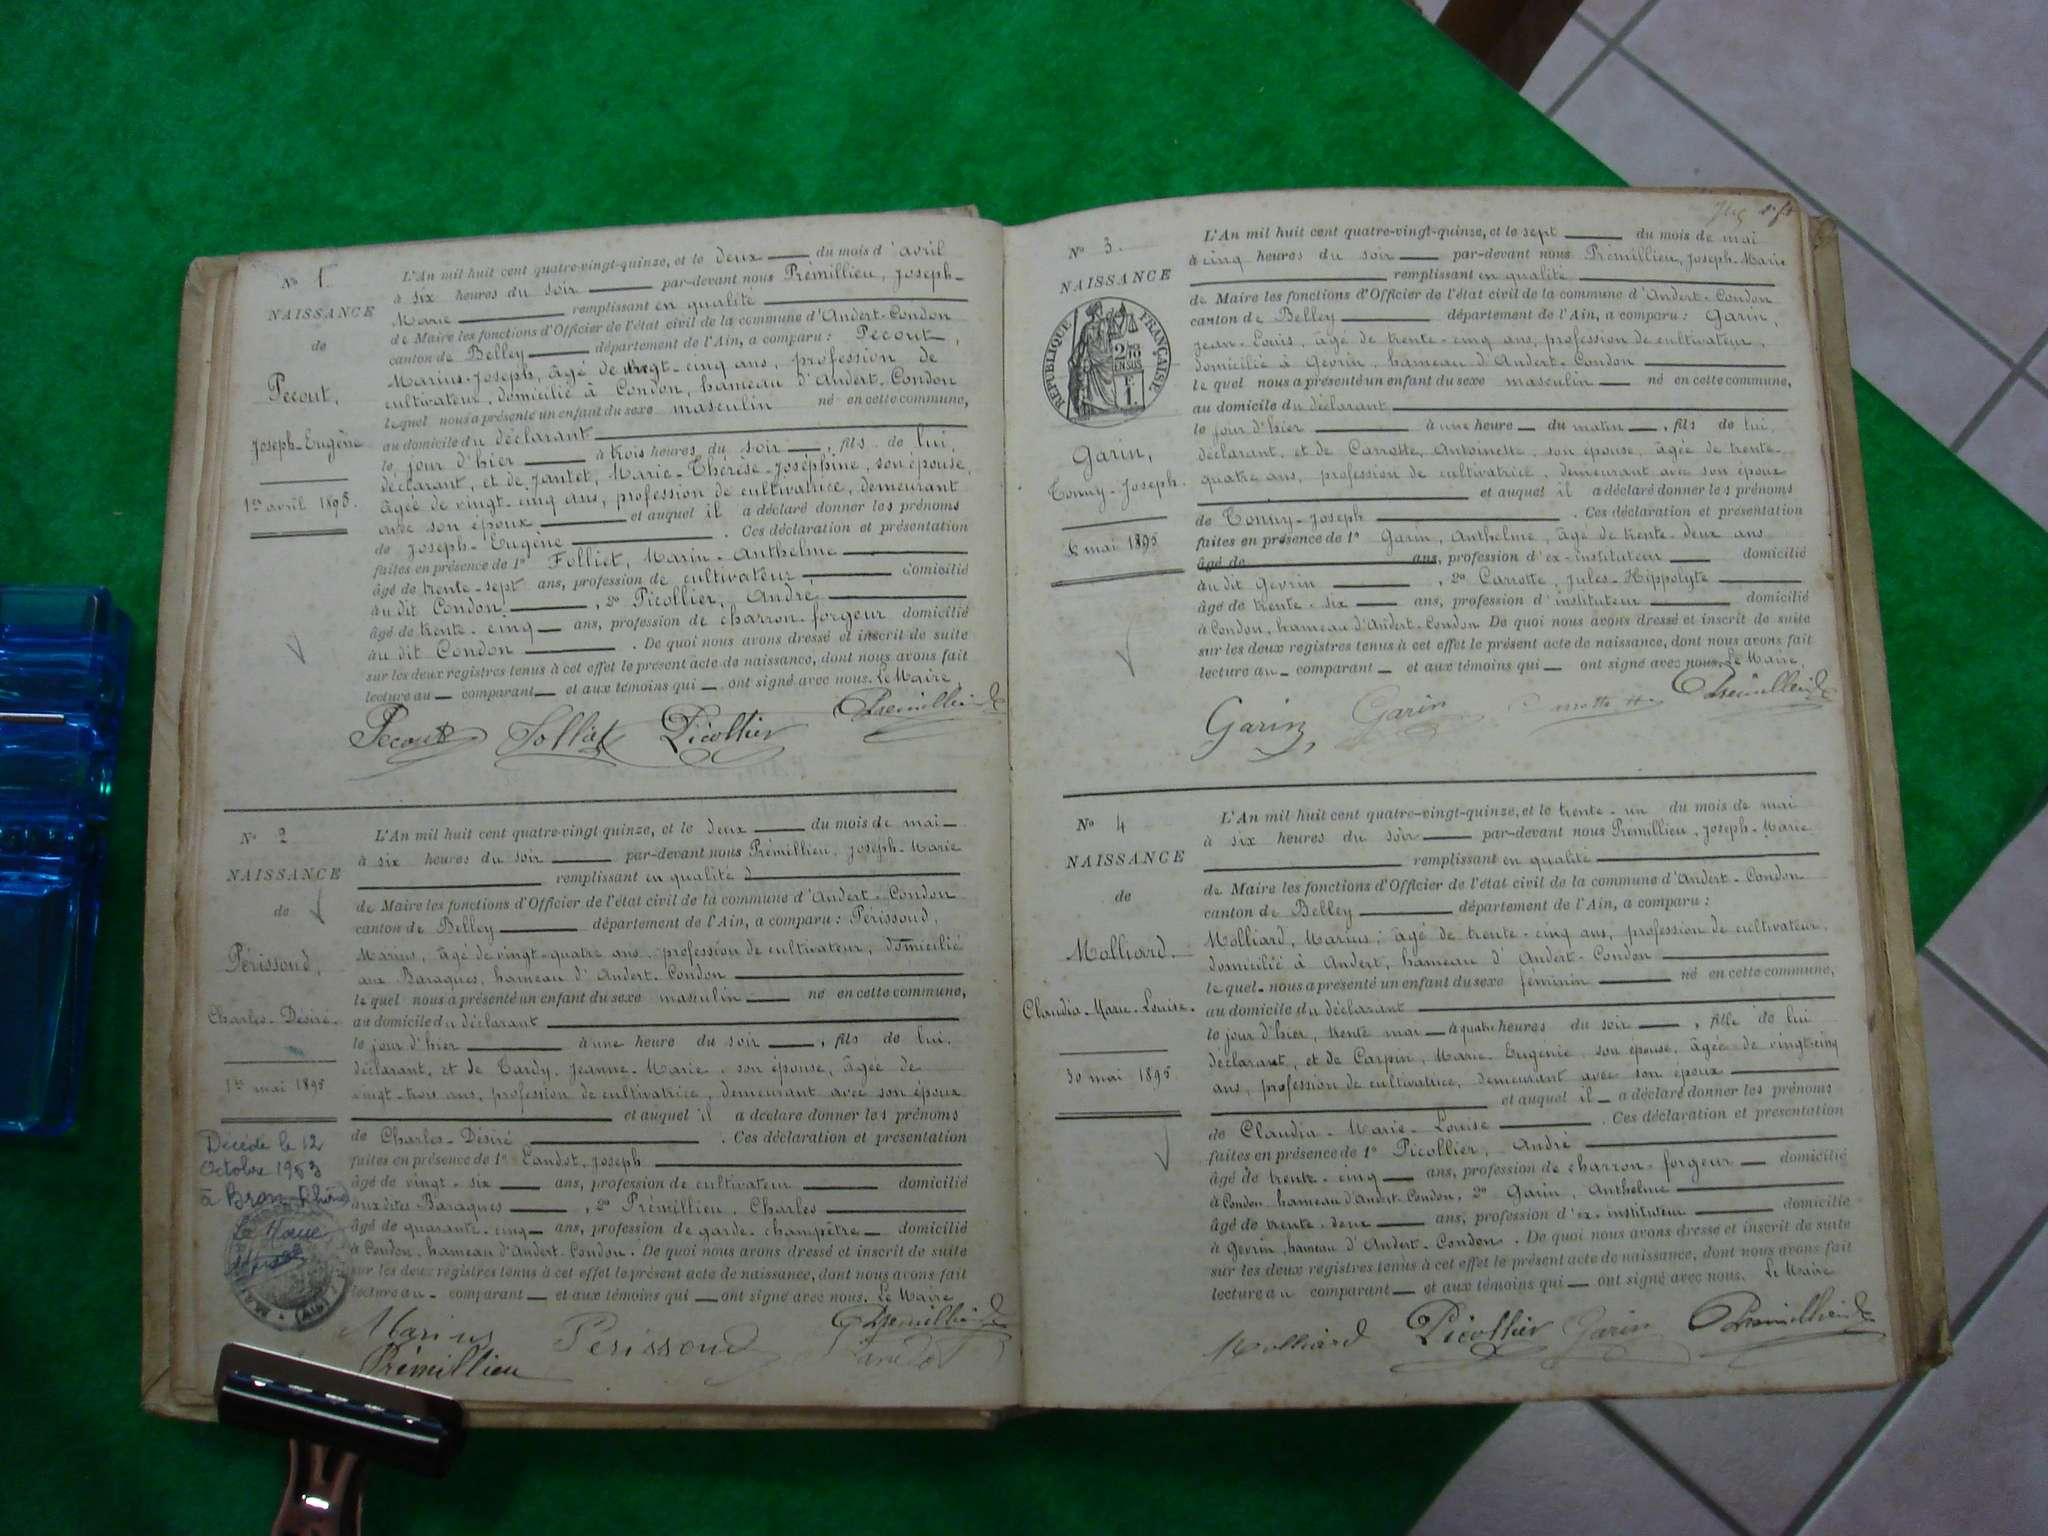 Nº 1.
NAISSANCE
de
Pecout,
Joseph-Eugène
1er avril 1895.
L'An mil huit cent quatre-vingt-quinze, et le deux du mois d'avril
à six heures du soir par-devant nous Prémillieu, Joseph-
Marie remplissant en qualité
de Maire les fonctions d'Officier de l'état civil de la commune d'Andert-Condon
canton de Belley département de l'Ain, a comparu : Pecout,
Marius-Joseph, âgé de vingt-cinq ans, profession de
cultivateur, domicilié à Condon, hameau d'Andert-Condon
lequel nous a présenté un enfant du sexe masculin né en cette commune,
au domicile du déclarant
le jour d'hier à trois heures du soir, fils de lui
déclarant, et de Jantet, Marie-Thérèse-Joséphine, son épouse,
âgée de vingt-cinq ans, profession de cultivatrice, demeurant
avec son époux et auquel il a déclaré donner les prénoms
de Joseph-Eugène. Ces déclaration et présentation
faites en présence de 1º Folliet, Marin-Anthelme
âgé de trente-sept ans, profession de cultivateur domicilié
au dit Condon, 2º Picollier, André,
âgé de trente-cinq ans, profession de charron-forgeur domicilié
au dit Condon. De quoi nous avons dressé et inscrit de suite
sur les deux registres tenus à cet effet le présent acte de naissance, dont nous avons fait
lecture au comparant et aux témoins qui ont signé avec nous. Le Maire,
Pecout Folliet Picollier Prémillieu
Nº 2
NAISSANCE
de
Périssoud,
Charles-Désiré.
1er mai 1895
Décédé le 12
Octobre 1983
à Bron (Rhône)
Le Maire
L'An mil huit cent quatre-vingt-quinze, et le deux du mois de mai
à six heures du soir par-devant nous Prémillieu, Joseph-Marie
remplissant en qualité
de Maire les fonctions d'Officier de l'état civil de la commune d'Andert-Condon
canton de Belley département de l'Ain, a comparu : Périssoud,
Marius, âgé de vingt-quatre ans, profession de cultivateur, domicilié
aux Baraques, hameau d'Andert-Condon
lequel nous a présenté un enfant du sexe masculin né en cette commune,
au domicile du déclarant
le jour d'hier à une heure du soir, fils de lui,
déclarant, et de Tardy, Jeanne-Marie, son épouse, âgée de
vingt-trois ans, profession de cultivatrice, demeurant avec son époux
et auquel il a déclaré donner les prénoms
de Charles-Désiré. Ces déclaration et présentation
faites en présence de 1º Landot, Joseph
âgé de vingt-six ans, profession de cultivateur domicilié
aux dites Baraques, 2º Prémillieu, Charles
âgé de quarante-cinq ans, profession de garde-champêtre domicilié
à Condon, hameau d'Andert-Condon. De quoi nous avons dressé et inscrit de suite
sur les deux registres tenus à cet effet le présent acte de naissance, dont nous avons fait
lecture au comparant et aux témoins qui ont signé avec nous. Le Maire
Marius Perissoud Prémillieu
Prémillieu
Nº 3.
NAISSANCE
RÉPUBLIQUE FRANÇAISE
2/10 EN SUS
1 F.
Garin,
Tonny-Joseph.
6 mai 1895
L'An mil huit cent quatre-vingt-quinze, et le sept du mois de mai
à cinq heures du soir par-devant nous Prémillieu, Joseph-Marie
remplissant en qualité
de Maire les fonctions d'Officier de l'état civil de la commune d'Andert-Condon
canton de Belley département de l'Ain, a comparu : Garin,
Jean-Louis, âgé de trente-cinq ans, profession de cultivateur,
domicilié à Gevrin, hameau d'Andert-Condon
lequel nous a présenté un enfant du sexe masculin né en cette commune,
au domicile du déclarant
le jour d'hier à une heure du matin, fils de lui,
déclarant, et de Carrotte, Antoinette, son épouse, âgée de trente-
quatre ans, profession de cultivatrice, demeurant avec son époux
et auquel il a déclaré donner les prénoms
de Tonny-Joseph. Ces déclaration et présentation
faites en présence de 1º Garin, Anthelme, âgé de trente-deux ans
âgé de ans, profession d'ex-instituteur domicilié
au dit Gevrin, 2º Carrotte, Jules-Hippolyte
âgé de trente-six ans, profession d'instituteur domicilié
à Condon, hameau d'Andert-Condon De quoi nous avons dressé et inscrit de suite
sur les deux registres tenus à cet effet le présent acte de naissance, dont nous avons fait
lecture au comparant et aux témoins qui ont signé avec nous. Le Maire,
Garin, Garin Prémillieu
Nº 4
NAISSANCE
de
Molliard.
Claudia-Marie-Louise.
30 mai 1895
L'An mil huit cent quatre-vingt-quinze, et le trente-un du mois de mai
à six heures du soir par-devant nous Prémillieu, Joseph-Marie
remplissant en qualité
de Maire les fonctions d'Officier de l'état civil de la commune d'Andert-Condon
canton de Belley département de l'Ain, a comparu :
Molliard, Marius, âgé de trente-cinq ans, profession de cultivateur,
domicilié à Andert, hameau d'Andert-Condon
lequel nous a présenté un enfant du sexe féminin né en cette commune,
au domicile du déclarant
le jour d'hier, trente mai à quatre heures du soir, fille de lui
déclarant, et de Carpin, Marie-Eugénie, son épouse, âgée de vingt-cinq
ans, profession de cultivatrice, demeurant avec son époux
et auquel il a déclaré donner les prénoms
de Claudia-Marie-Louise. Ces déclaration et présentation
faites en présence de 1º Picollier, André
âgé de trente-cinq ans, profession de charron-forgeur domicilié
à Condon hameau d'Andert-Condon, 2º Garin, Anthelme
âgé de trente-deux ans, profession d'ex-instituteur domicilié
à Gevrin, hameau d'Andert-Condon. De quoi nous avons dressé et inscrit de suite
sur les deux registres tenus à cet effet le présent acte de naissance, dont nous avons fait
lecture au comparant et aux témoins qui ont signé avec nous. Le Maire
Molliard Picollier Garin Prémillieu